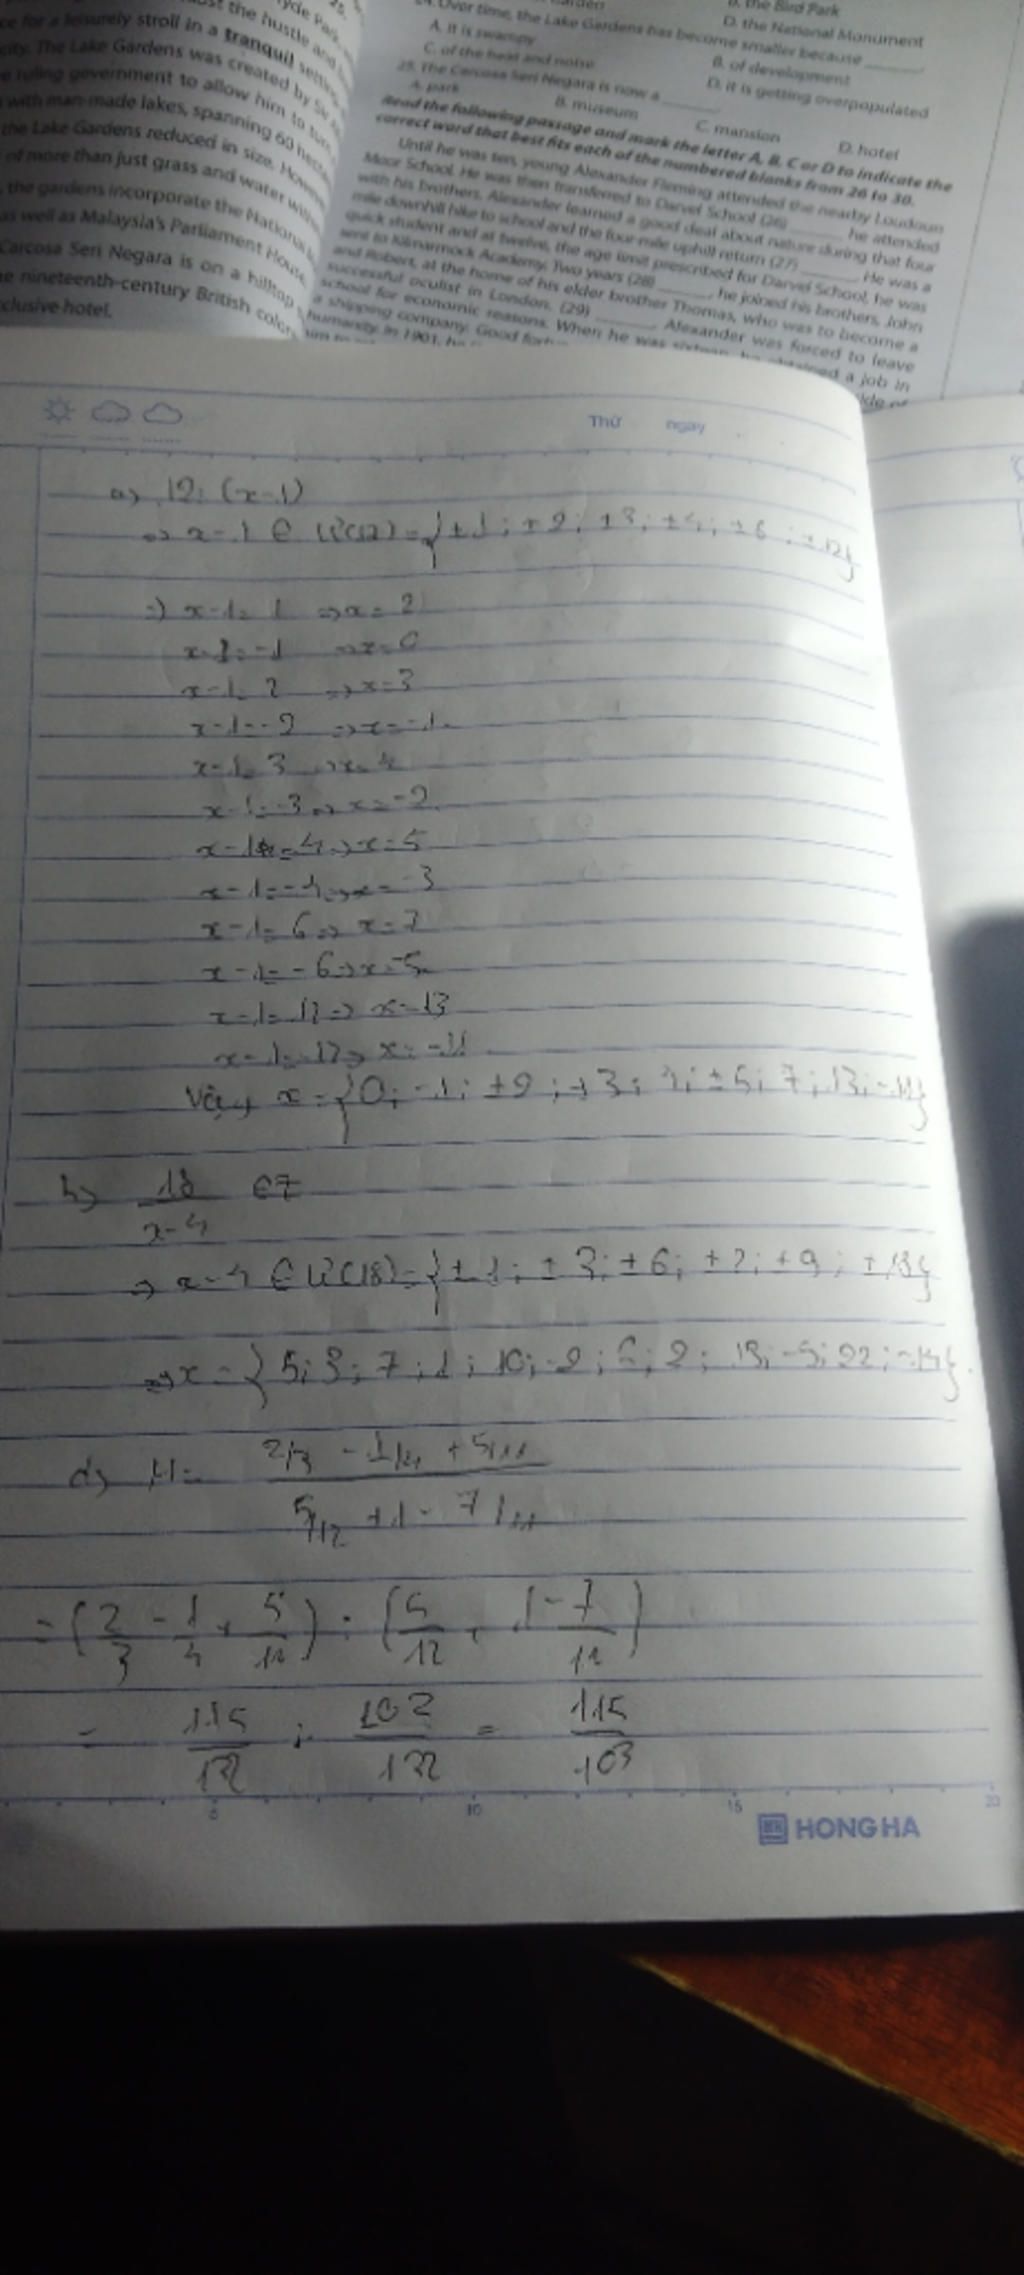 ce for a leisurely stroll in a tranquil
city. The Lake Gardens was created by Sir
ruling government to allow him to turn
with man-made lakes, spanning 60
the Lake Gardens reduced in size.
of more than just grass and water
the gardens incorporate the National
as well as Malaysia's Parliament House.
Carcosa Seri Negara is on a hilltop
nineteenth-century British
clusive hotel.
B. the Bird Park
D. the National Monument
24. Over time, the Lake Gardens has become smaller because ______.
A. it is swampy
B. of development
C. of the heat and noise
D. it is getting overpopulated
25. The Carcosa Seri Negara is now a ______.
A. park
B. museum
C. mansion
D. hotel
Read the following passage and mark the letter A, B, C or D to indicate the
correct word that best fits each of the numbered blanks from 26 to 30.
Until he was ten, young Alexander Fleming attended the nearby Loudoun
Moor School. He was then transferred to Darvel School (26) ______ he attended
with his brothers. Alexander learned a good deal about nature during that four
mile downhill hike to school and the four-mile uphill return (27) ______. He was a
quick student and at twelve, the age limit prescribed for Darvel School, he was
sent to Kilmarnock Academy. Two years (28) ______, he joined his brothers, John
and Robert, at the home of his elder brother Thomas, who was to become a
successful oculist in London. (29) ______, Alexander was forced to leave
school for economic reasons. When he was sixteen, he obtained a job in
a shipping company. Good
humanity. In 1901, he
Thứ ngày
a) 12 : (x-1)
=> x-1 ∈ Ư(12) = {±1; ±2; ±3; ±4; ±6; ±12}
=) x-1= 1 => x= 2
x-1=-1 => x=0
x-1= 2 => x=3
x-1=-2 => x=-1
x-1= 3 => x=4
x-1=-3 => x=-2
x-1=4 => x=5
x-1=-4 => x=-3
x-1= 6 => x=7
x-1= -6 => x=-5
x-1=12 => x=13
x-1=-12 => x=-11
Vậy x = {0; -1; ±2; ±3; 4; ±5; 7; 13; -11}
b) 18/(x-4) ∈ Z
=> x-4 ∈ Ư(18) = {±1; ±3; ±6; ±2; ±9; ±18}
=> x = {5; 3; 7; 1; 10; -2; 6; 2; 13; -5; 22; -14}.
d) M= (2/3 - 1/4 + 5/11)/(5/12 + 1 - 7/11)
= (2/3 - 1/4 + 5/11) : (5/12 + 1 - 7/11)
= 115/132 : 103/132 = 115/103
5 10 15 20
HONG HA